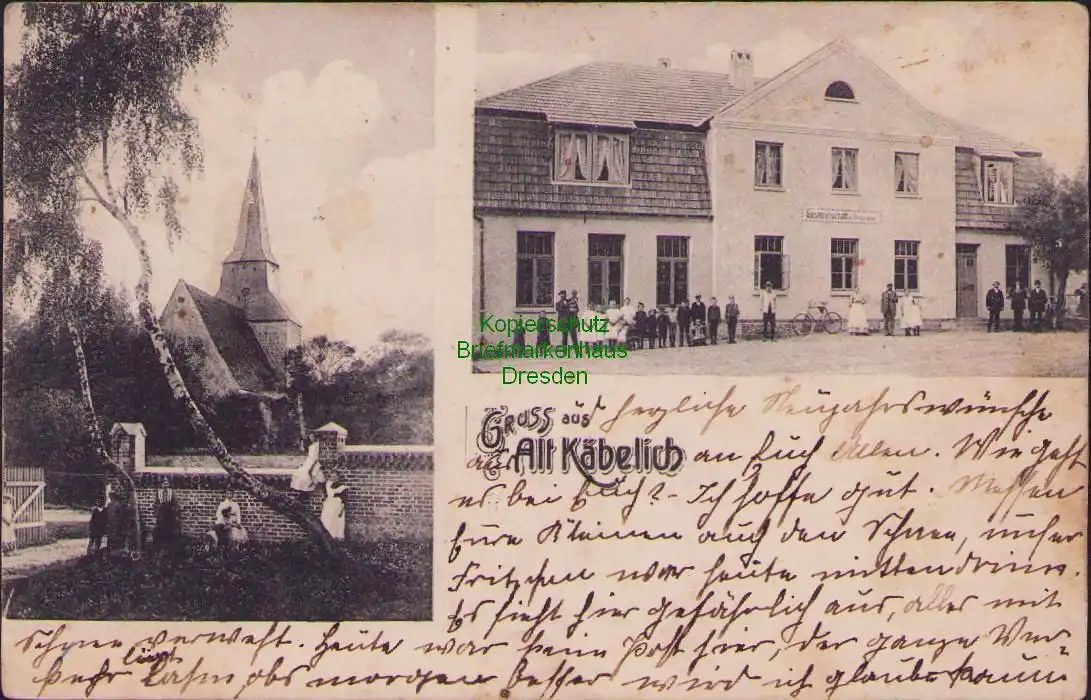 Gastwirtschaft
Kopierschutz
Briefmarkenhaus
Dresden
Gruss aus
Alt Käbelich
d herzliche Neujahrswünsche
aus an Euch Allen. Wie geht
es bei Euch? - Ich hoffe gut. Messen
Eure Kleinen auch den Schnee, unser
Fritzchen war heute mittendrinn.
Es sieht hier gefährlich aus, alles mit
Schnee verweht. Heute war keine Post hier, der ganze Ver-
kehr liegt lahm, obs morgen besser wird ich glaube kaum